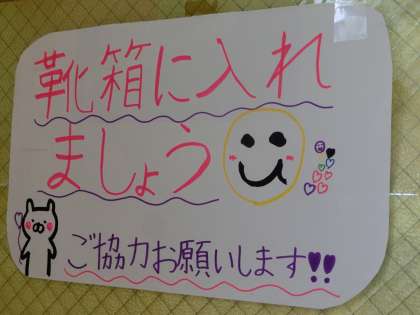 靴箱に入れ
ましょう
ご協力お願いします!!